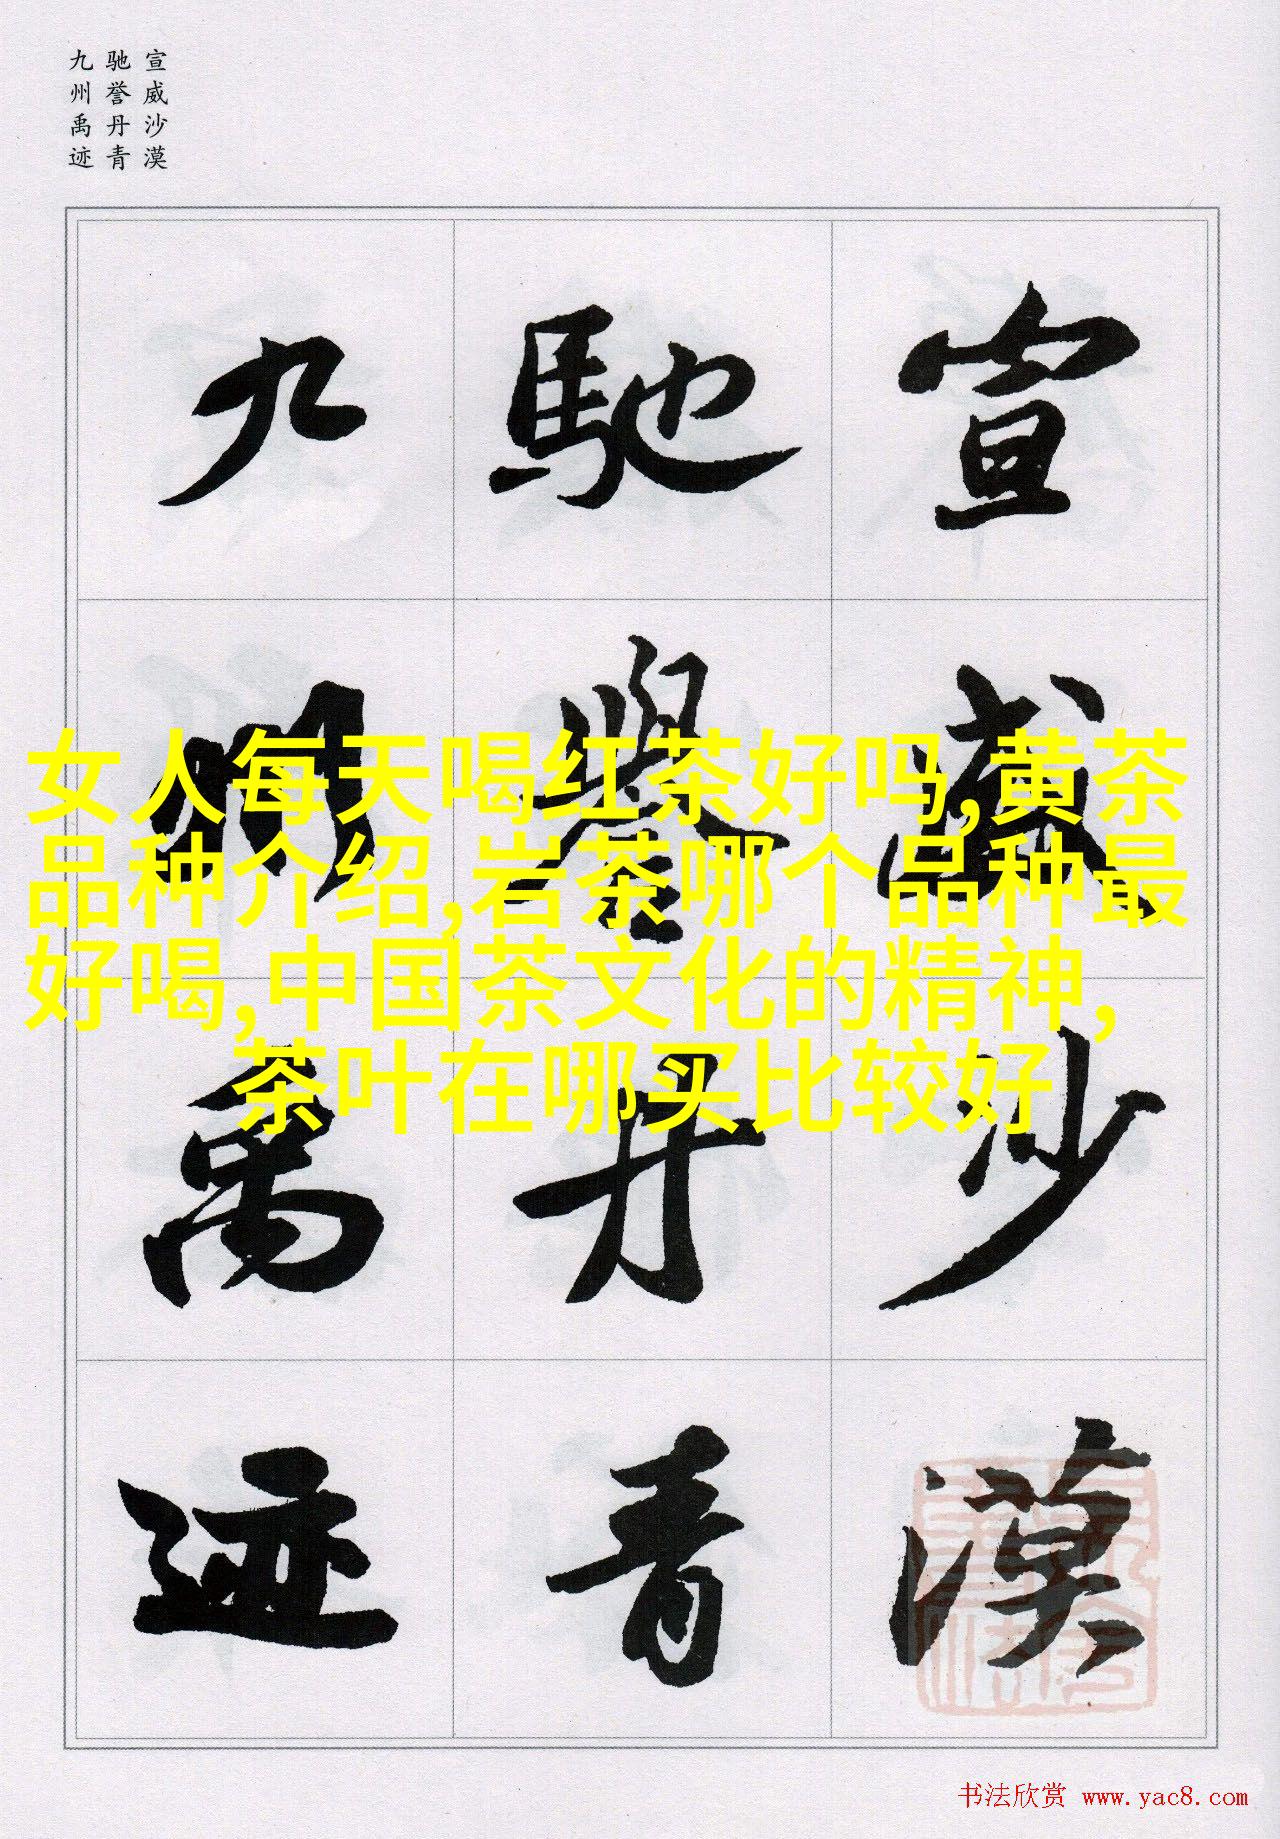 宣威沙漠
驰誉丹青
九州禹迹
宣威沙漠
馳譽丹青
九州禹迹
女人每天喝红茶好吗,黄茶
品种介绍,岩茶哪个品种最
好喝,中国茶文化的精神,
茶叶在哪买比较好
书法欣赏 www.yac8.com